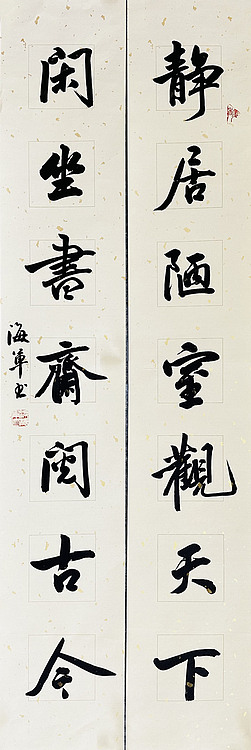 静居陋室觀天下
閑坐書齋閱古今
海军书